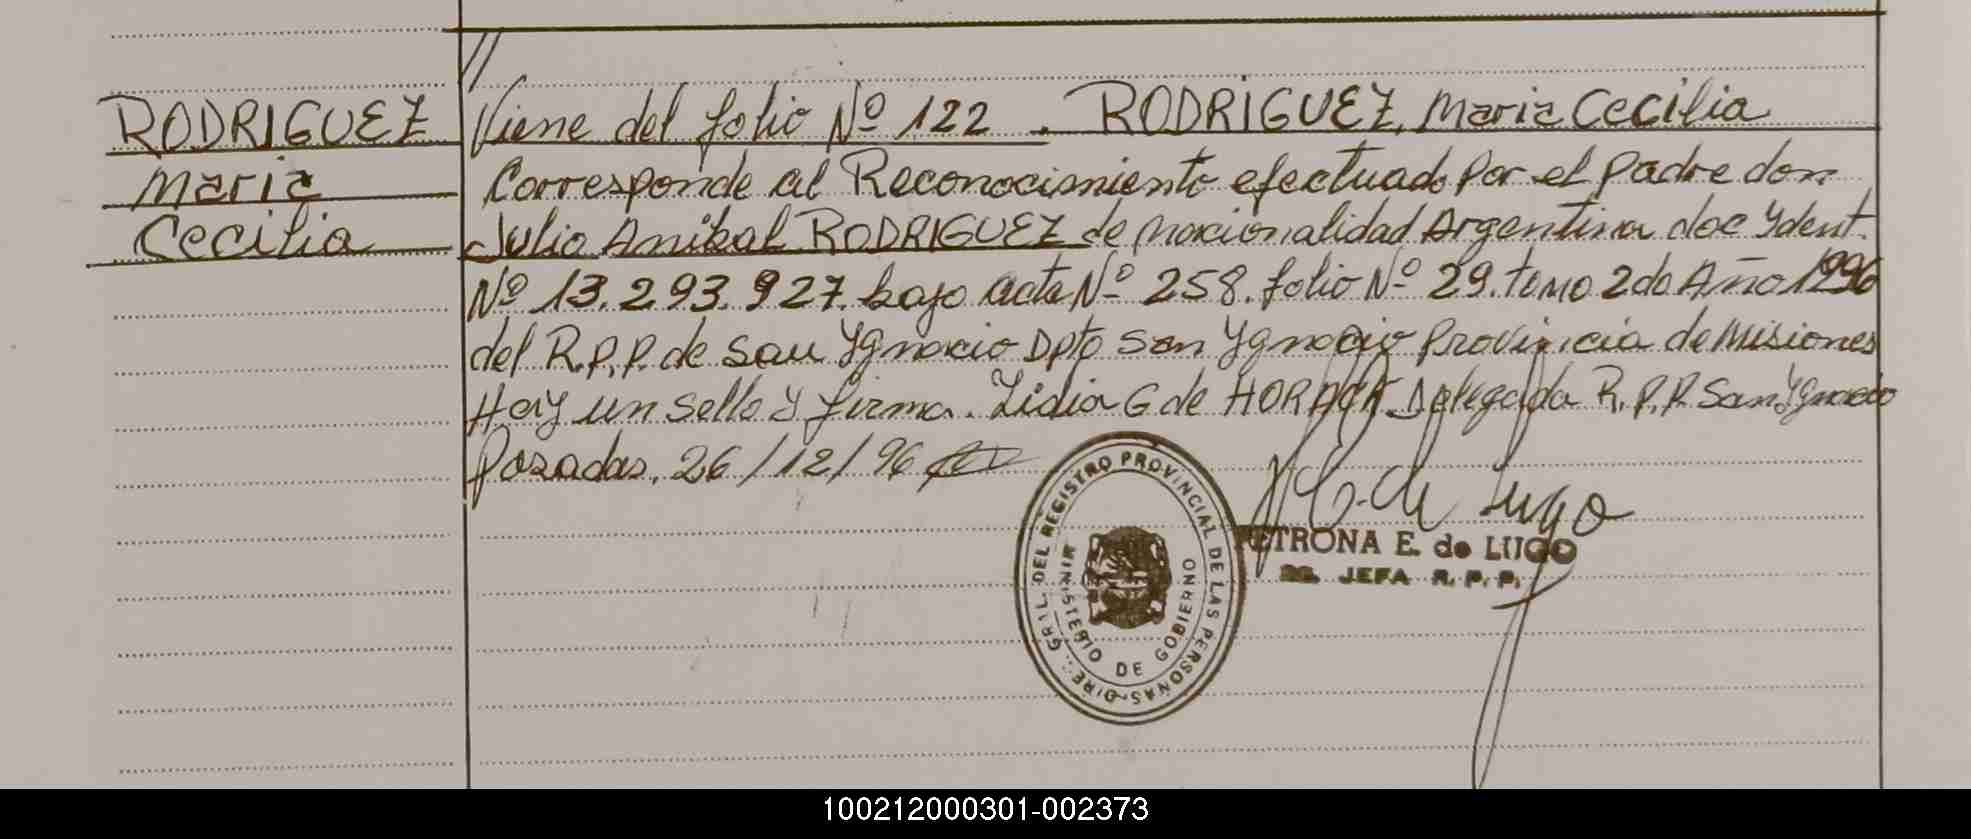 RODRIGUEZ
Maria
Cecilia
//
Viene del folio Nº 122 . RODRIGUEZ, Maria Cecilia
Corresponde al Reconocimiento efectuado Por el padre don
Julio Anibal RODRIGUEZ de nacionalidad Argentina doc Ydent.
Nº 13.293.927. bajo acta Nº 258. folio Nº 29. tomo 2do Año 1996
del R.P.P. de San Ygnacio Dpto San Ygnacio Provincia de Misiones
Hay un sello y firma. Lidia G de Delegada R.P.P. San Ygnacio
Posadas, 26/12/96
DIREC. GRAL. DEL REGISTRO PROVINCIAL DE LAS PERSONAS
MINISTERIO DE GOBIERNO
de Lugo
PETRONA E. de LUGO
JEFA R. P. P.
100212000301-002373